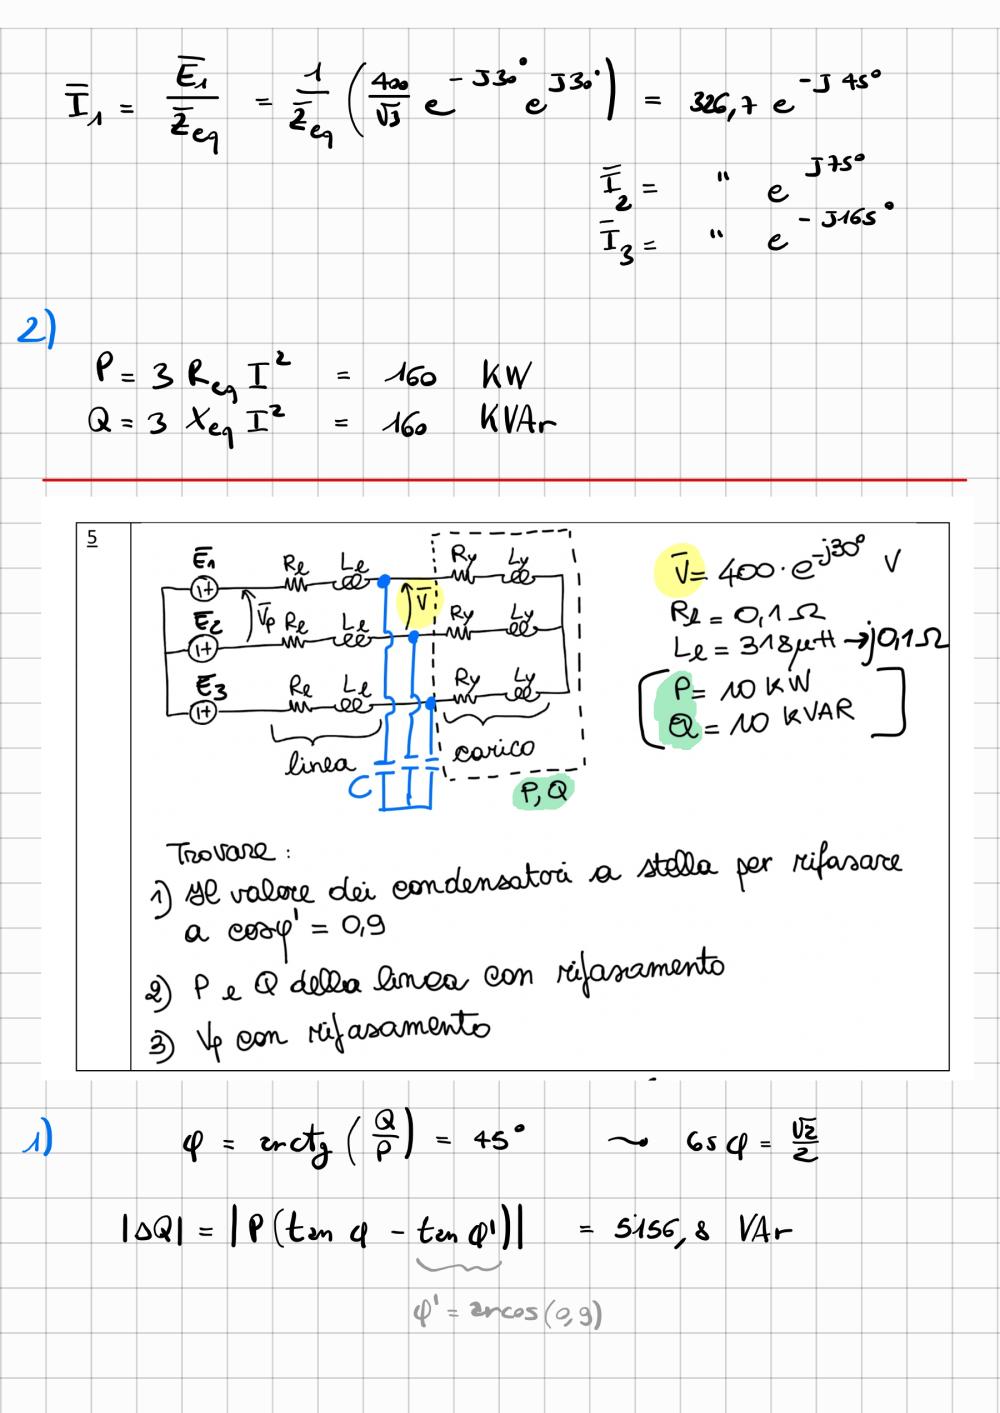 Ī₁ = Ē₁ / Z̄eq = 1 / Z̄eq ( 400/√3 e^-J30° e^J30° ) = 326,7 e^-J45°
Ī₂ = " e^J75°
Ī₃ = " e^-J165°
2)
P = 3 Req I² = 160 KW
Q = 3 Xeq I² = 160 KVAr
5
Ē₁ Re Le Ry Ly
V̄p V̄
Ē₂ Re Le Ry Ly
Ē₃ Re Le Ry Ly
linea carico
C
P, Q
V̄ = 400 · e^-j30° V
Re = 0,1 Ω
Le = 318 μH → j0,1 Ω
[ P = 10 KW
Q = 10 KVAR ]
Trovare :
1) Il valore dei condensatori a stella per rifasare
a cosφ' = 0,9
2) P e Q della linea con rifasamento
3) Vp con rifasamento
1) φ = arctg ( Q/P ) = 45° ⇝ cos φ = √2/2
|ΔQ| = |P(tan φ - tan φ')| = 5156,8 VAr
φ' = arcos(0,9)